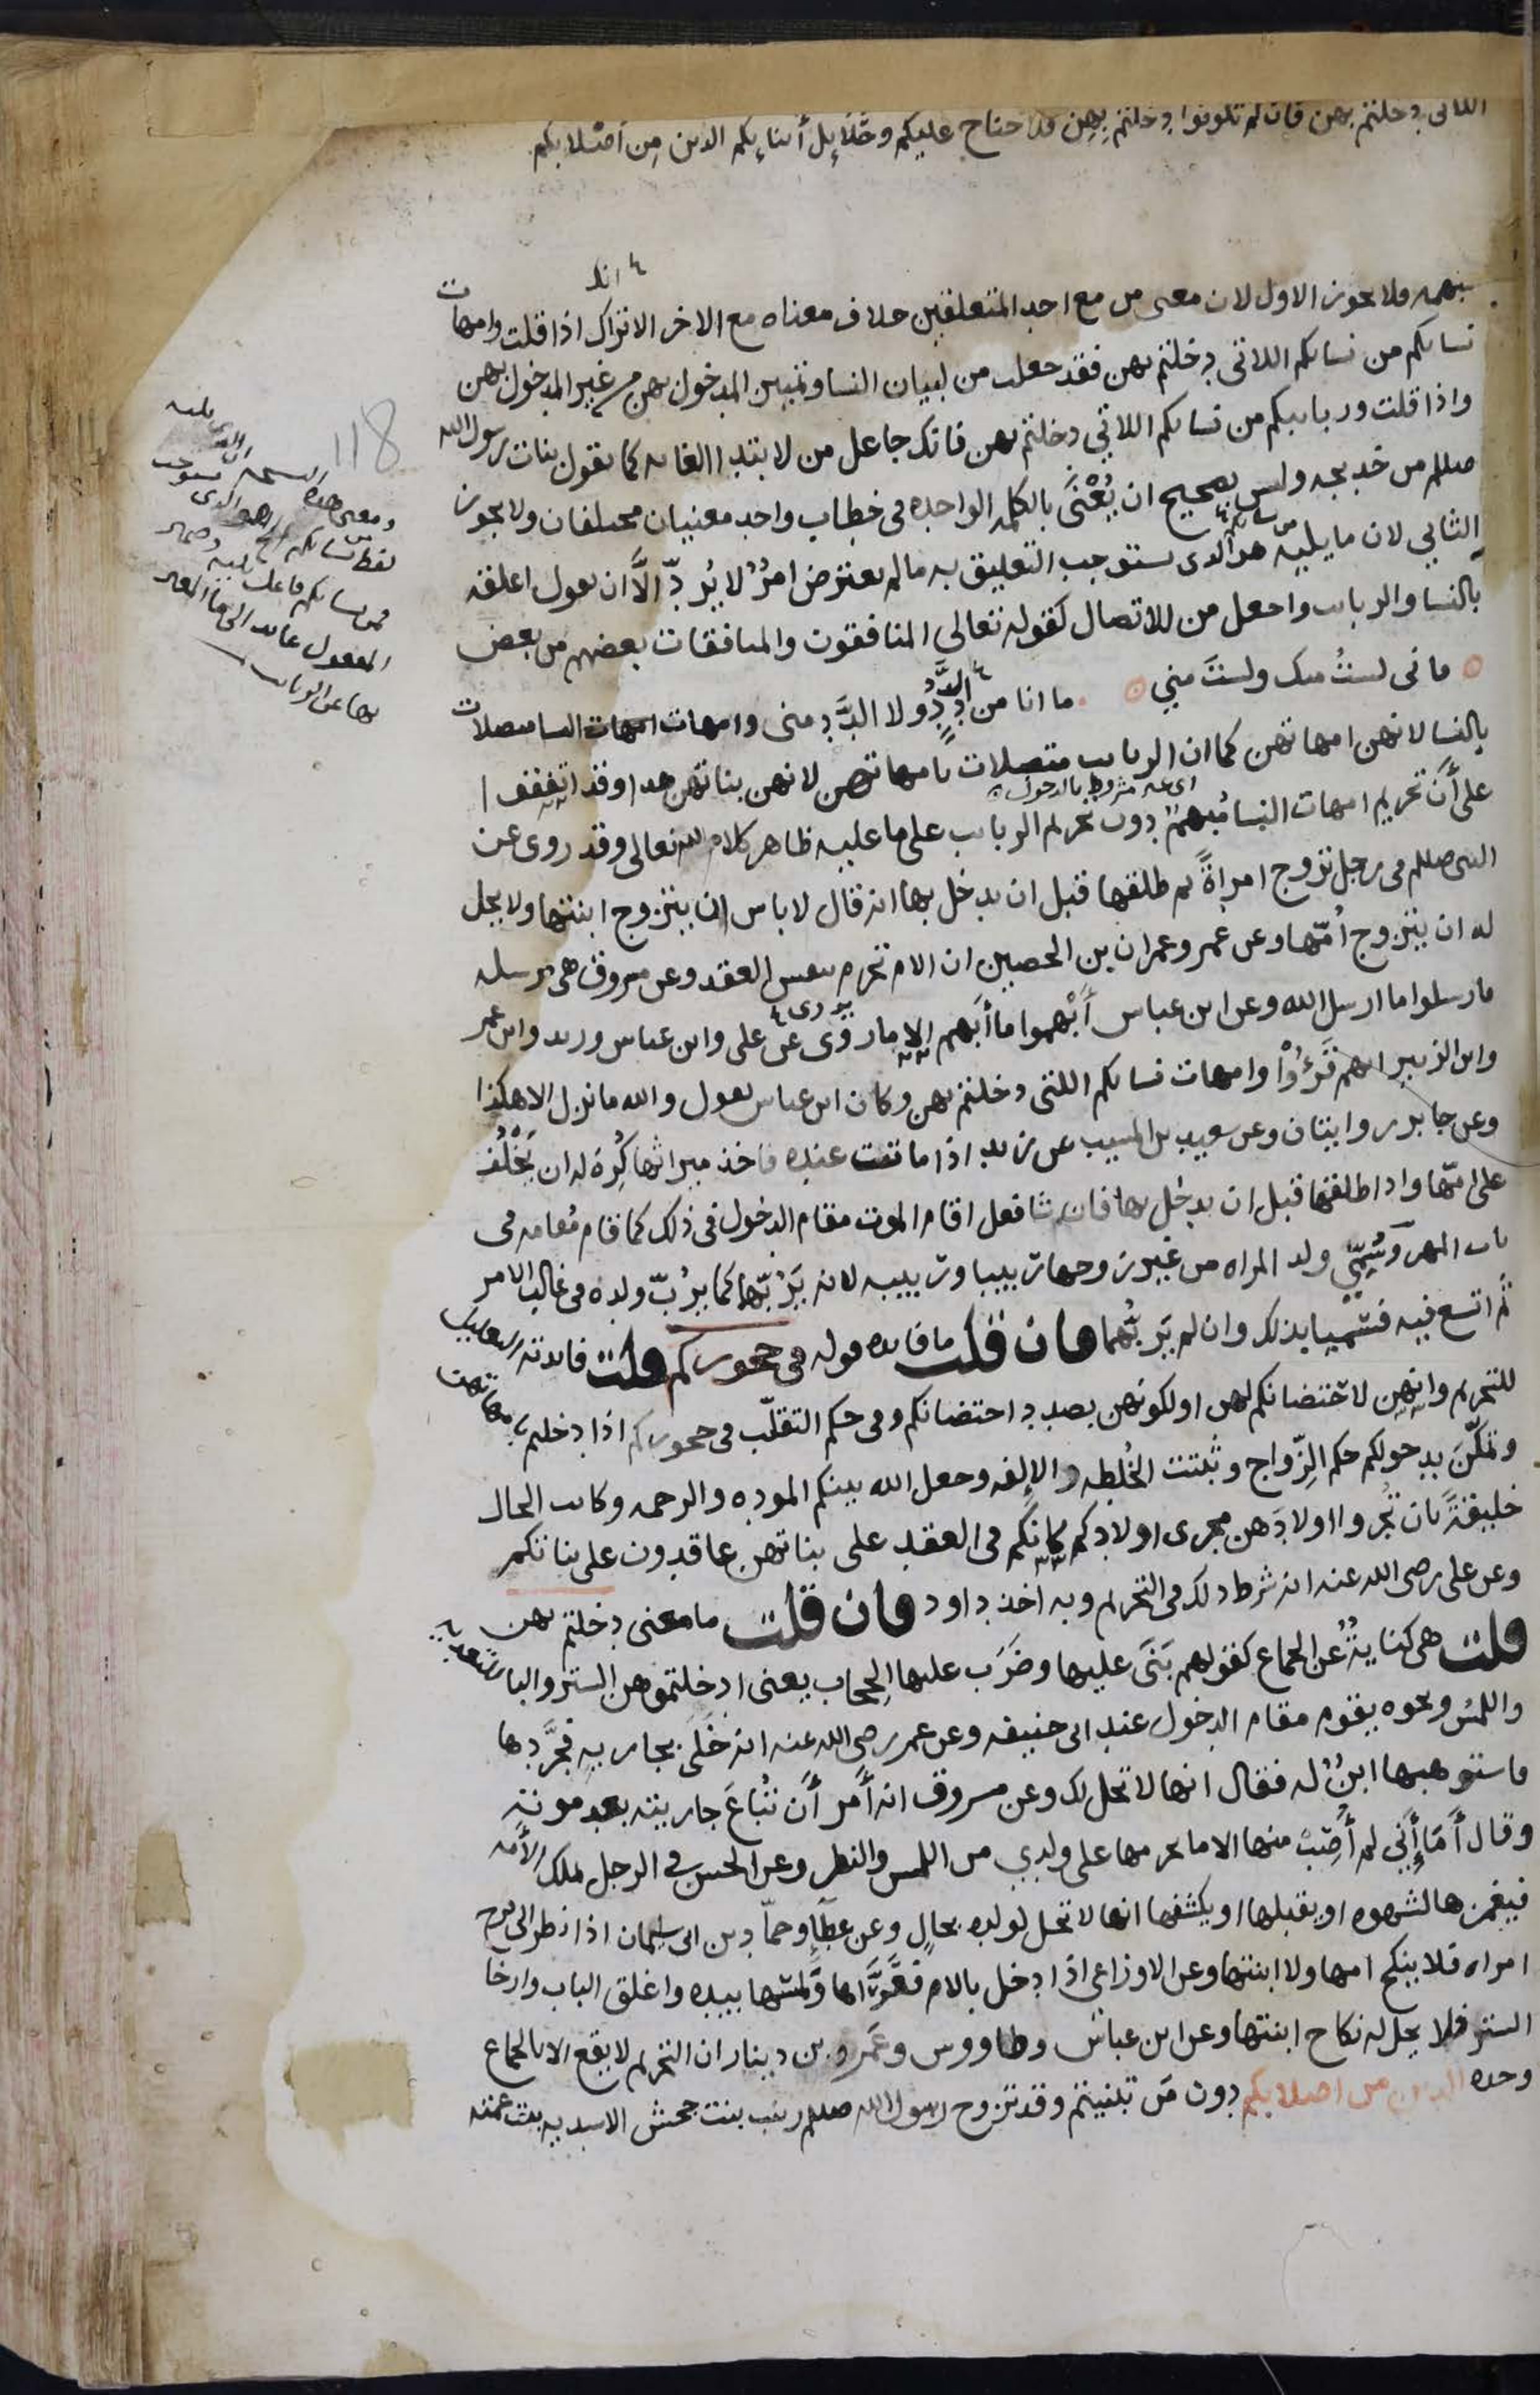 اللاتى دخلتم بهن فان لم تكونوا دخلتم بهن فلا جناح عليكم وحلائل أبنائكم الذين من أصلابكم
مبهمه ولا يجوز الاول لان معنى من مع احد المتعلقين خلاف معناه مع الاخر الا تراك اذا قلت وامهات
نسائكم من نسائكم اللاتى دخلتم بهن فقد جعلت من لبيان النسا وتمييز المدخول بهن من غير المدخول بهن
واذا قلت وربائبكم من نسائكم اللاتي دخلتم بهن فانك جاعل من لابتدا الغايه كما تقول بنات رسول الله
صللم من خديجه وليس بصحيح ان يُعْنَى بالكلمه الواحده فى خطاب واحد معنيان مختلفان ولا يجوز
الثاني لان ما يليه هو الذى يستوجب التعليق به ما لم يعترض امرٌ لا يُردّ الّا ان تقول اعلقه
بالنسا والربائب واجعل من للاتصال كقوله تعالى المنافقون والمنافقات بعضهم من بعض
فانى لستُ منك ولستَ مني ما انا من دَدٍ ولا الدَّد منى وامهات النسا متصلات
بالنسا لانهن امهاتهن كما ان الربائب متصلات بامهاتهن لانهن بناتهن هذا وقد اتفقوا
اى غير مشروط بالدخول
على أنّ تحريم امهات النسا مُبهم دون تحريم الربائب على ما عليه ظاهر كلام الله تعالى وقد روى عن
النبى صللم فى رجل تزوج امراةً ثم طلقها قبل ان يدخل بها انه قال لا باس ان يتزوج ابنتها ولا يحل
له ان يتزوج أُمّها وعن عمر وعمران بن الحصين ان الام تحرم بنفس العقد وعن مسروق هى مرسله
فارسلوا ما ارسل الله وعن ابن عباس أَبْهموا ما أبهم الله الا ما روى عن على وابن عباس وزيد وابن عمر
وابن الزبير انهم قَرَءُوْا وامهات نسائكم اللتى دخلتم بهن وكان ابن عباس يقول والله ما نزل الا هكذا
وعن جابر روايتان وعن سعيد بن المسيب عن زيد اذا ماتت عنده فاخذ ميراثها كُرِهَ له ان يَخْلُفَ
على امّها واذا طلقها قبل ان يدخل بها فان شا فعل اقام الموت مقام الدخول فى ذلك كما قام مقامه فى
باب المهر وسُمّي ولد المراه من غير زوجها ربيبا وربيبه لانه يَرُبّهما كما يرُبّ ولده فى غالب الامر
ثم اتسع فيه فسُمّيا بذلك وان لم يَربّهما فان قلت ما فائده قوله فى حجوركم قلت فائدته التعليل
للتحريم وانهن لاحتضانكم لهن او لكونهن بصدد احتضانكم وفى حكم التقلّب فى حجوركم اذا دخلتم بامهاتهن
وتمكّنَ بدخولكم حكم الزّواج وثبتت الخُلطه والإلفه وجعل الله بينكم الموده والرحمه وكانت الحال
خليقةً بان تُجروا اولادَهن مجرى اولادكم كانكم فى العقد على بناتهن عاقدون على بناتكم
وعن على رضى الله عنه انه شرط ذلك فى التحريم وبه اخذ داود فان قلت ما معنى دخلتم بهن
قلت هى كنايةٌ عن الجماع كقولهم بَنَى عليها وضَرَب عليها الحجاب يعنى ادخلتموهن الستر والبا للتعديه
واللمسُ ونحوه يقوم مقام الدخول عند ابى حنيفه وعن عمر رضى الله عنه انه خَلَى بجاريهٍ فجَرَّدها
فاستوهبها ابنٌ له فقال انها لا تحل لك وعن مسروق انه أمر أن تُباعَ جاريته بعد موته
وقال أمَا إنّي لم أُصِبْ منها الا ما يحرمها على ولدي من اللمس والنظر وعن الحسن فى الرجل يملك الأمه
فيغمزها لشهوه او يقبلها او يكشفها انها لا تحل لولده بحالٍ وعن عطاءٍ وحمّاد بن ابى سليمان اذا نظر الى فرج
امراه فلا ينكح امها ولا ابنتها وعن الاوزاعى اذا دخل بالام فعَرَّاها ولمسَها بيده واغلق الباب وارخا
الستر فلا يحل له نكاح ابنتها وعن ابن عباس وطاووس وعَمرو بن دينار ان التحريم لا يقع الا بالجماع
وحده الذين من اصلابكم دون من تبنيتم وقد تزوج رسول الله صللم زينب بنت جحش الاسديه بنت عمته
118
ومعنى هذه النسخه ان الذى يليه
هو الذى يستوجب
لفظ نسائكم
من نسائكم فاعل يليه وضمير
المفعول عائد الى ما
بها عن الربائب